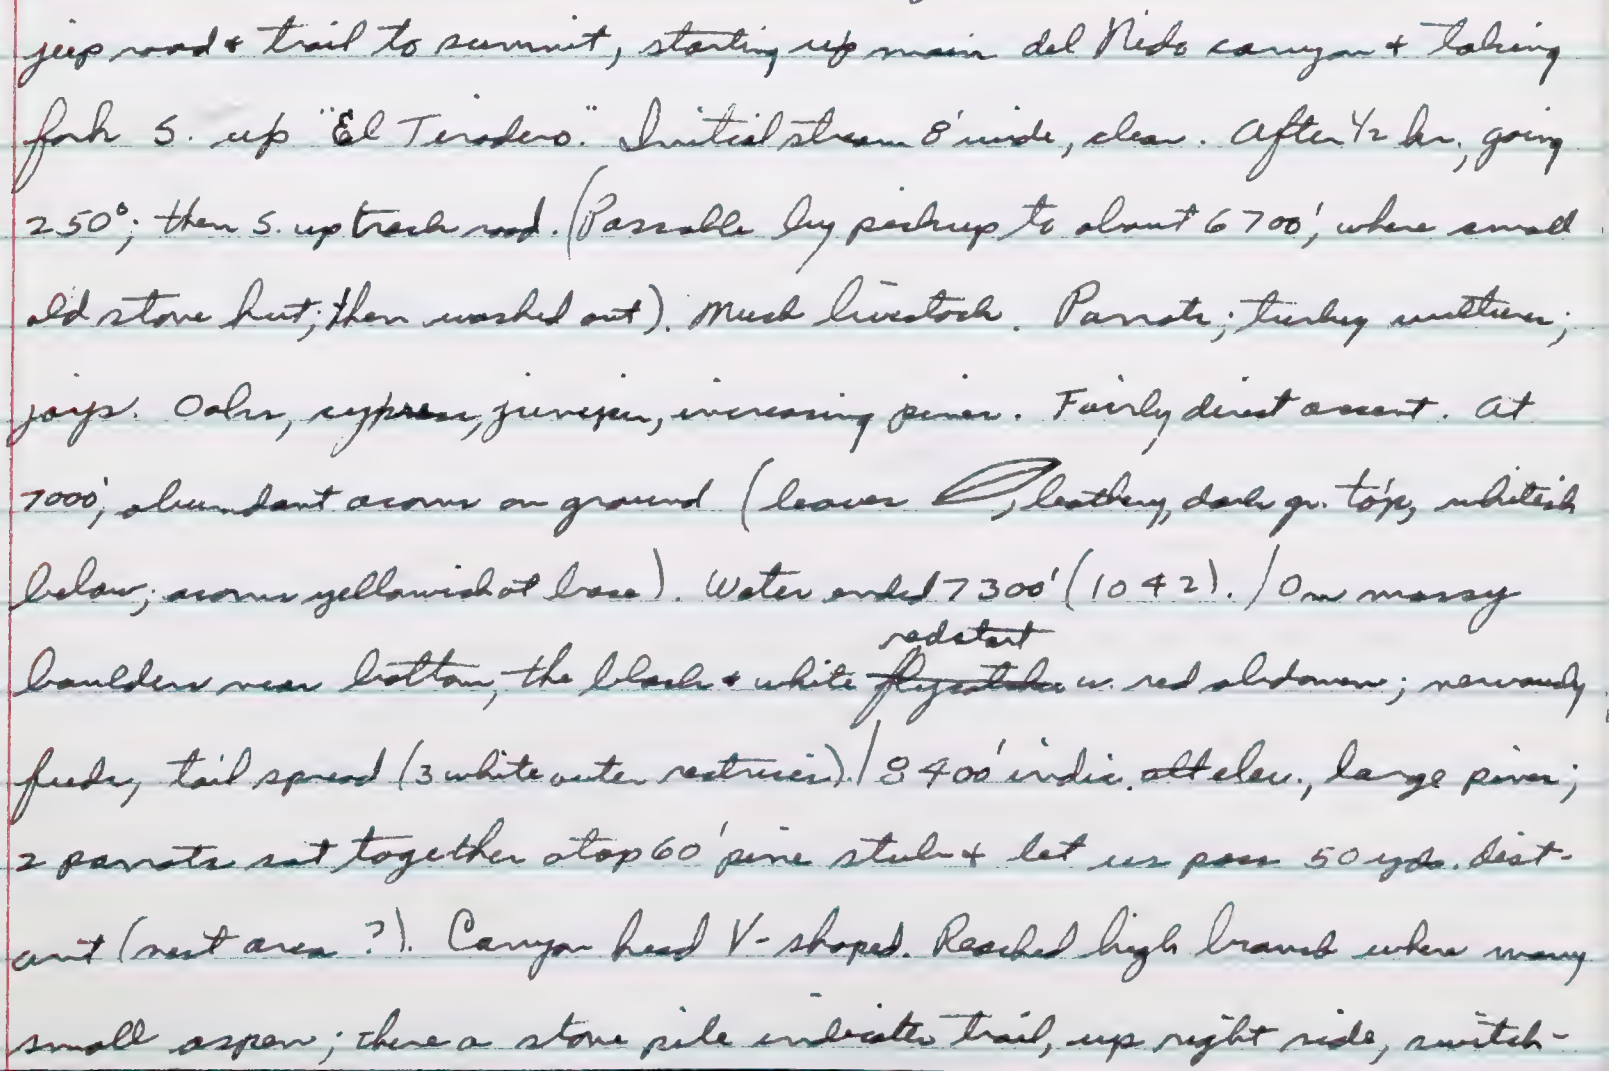 jeep road & trail to summit, starting up main del Nido canyon & taking
fork S. up "El Tiradero." Initial stream 8' wide, clear. After 1/2 hr., going
250°; then S. up track road. (Passable by pickup to about 6700', where small
old stone hut; then washed out). Much livestock. Parrots; turkey vultures;
jays. Oaks, cypress, juniper, increasing pines. Fairly direct ascent. At
7000', abundant acorns on ground (leaves , leathery, dark gr. top, whitish
below; acorns yellowish at base). Water ended 7300' (1042). / On mossy
redstart
boulders near bottom, the black & white flycatcher w. red abdomen; nervously
feeds, tail spread (3 white outer rectrices). / 8400' indic. alt elev., large pines;
2 parrots sat together atop 60' pine stub & let us pass 50 yds. dist-
ant (nest area?). Canyon head V-shaped. Reached high branch where many
small aspen; there a stone pile indicates trail, up right side, switch-